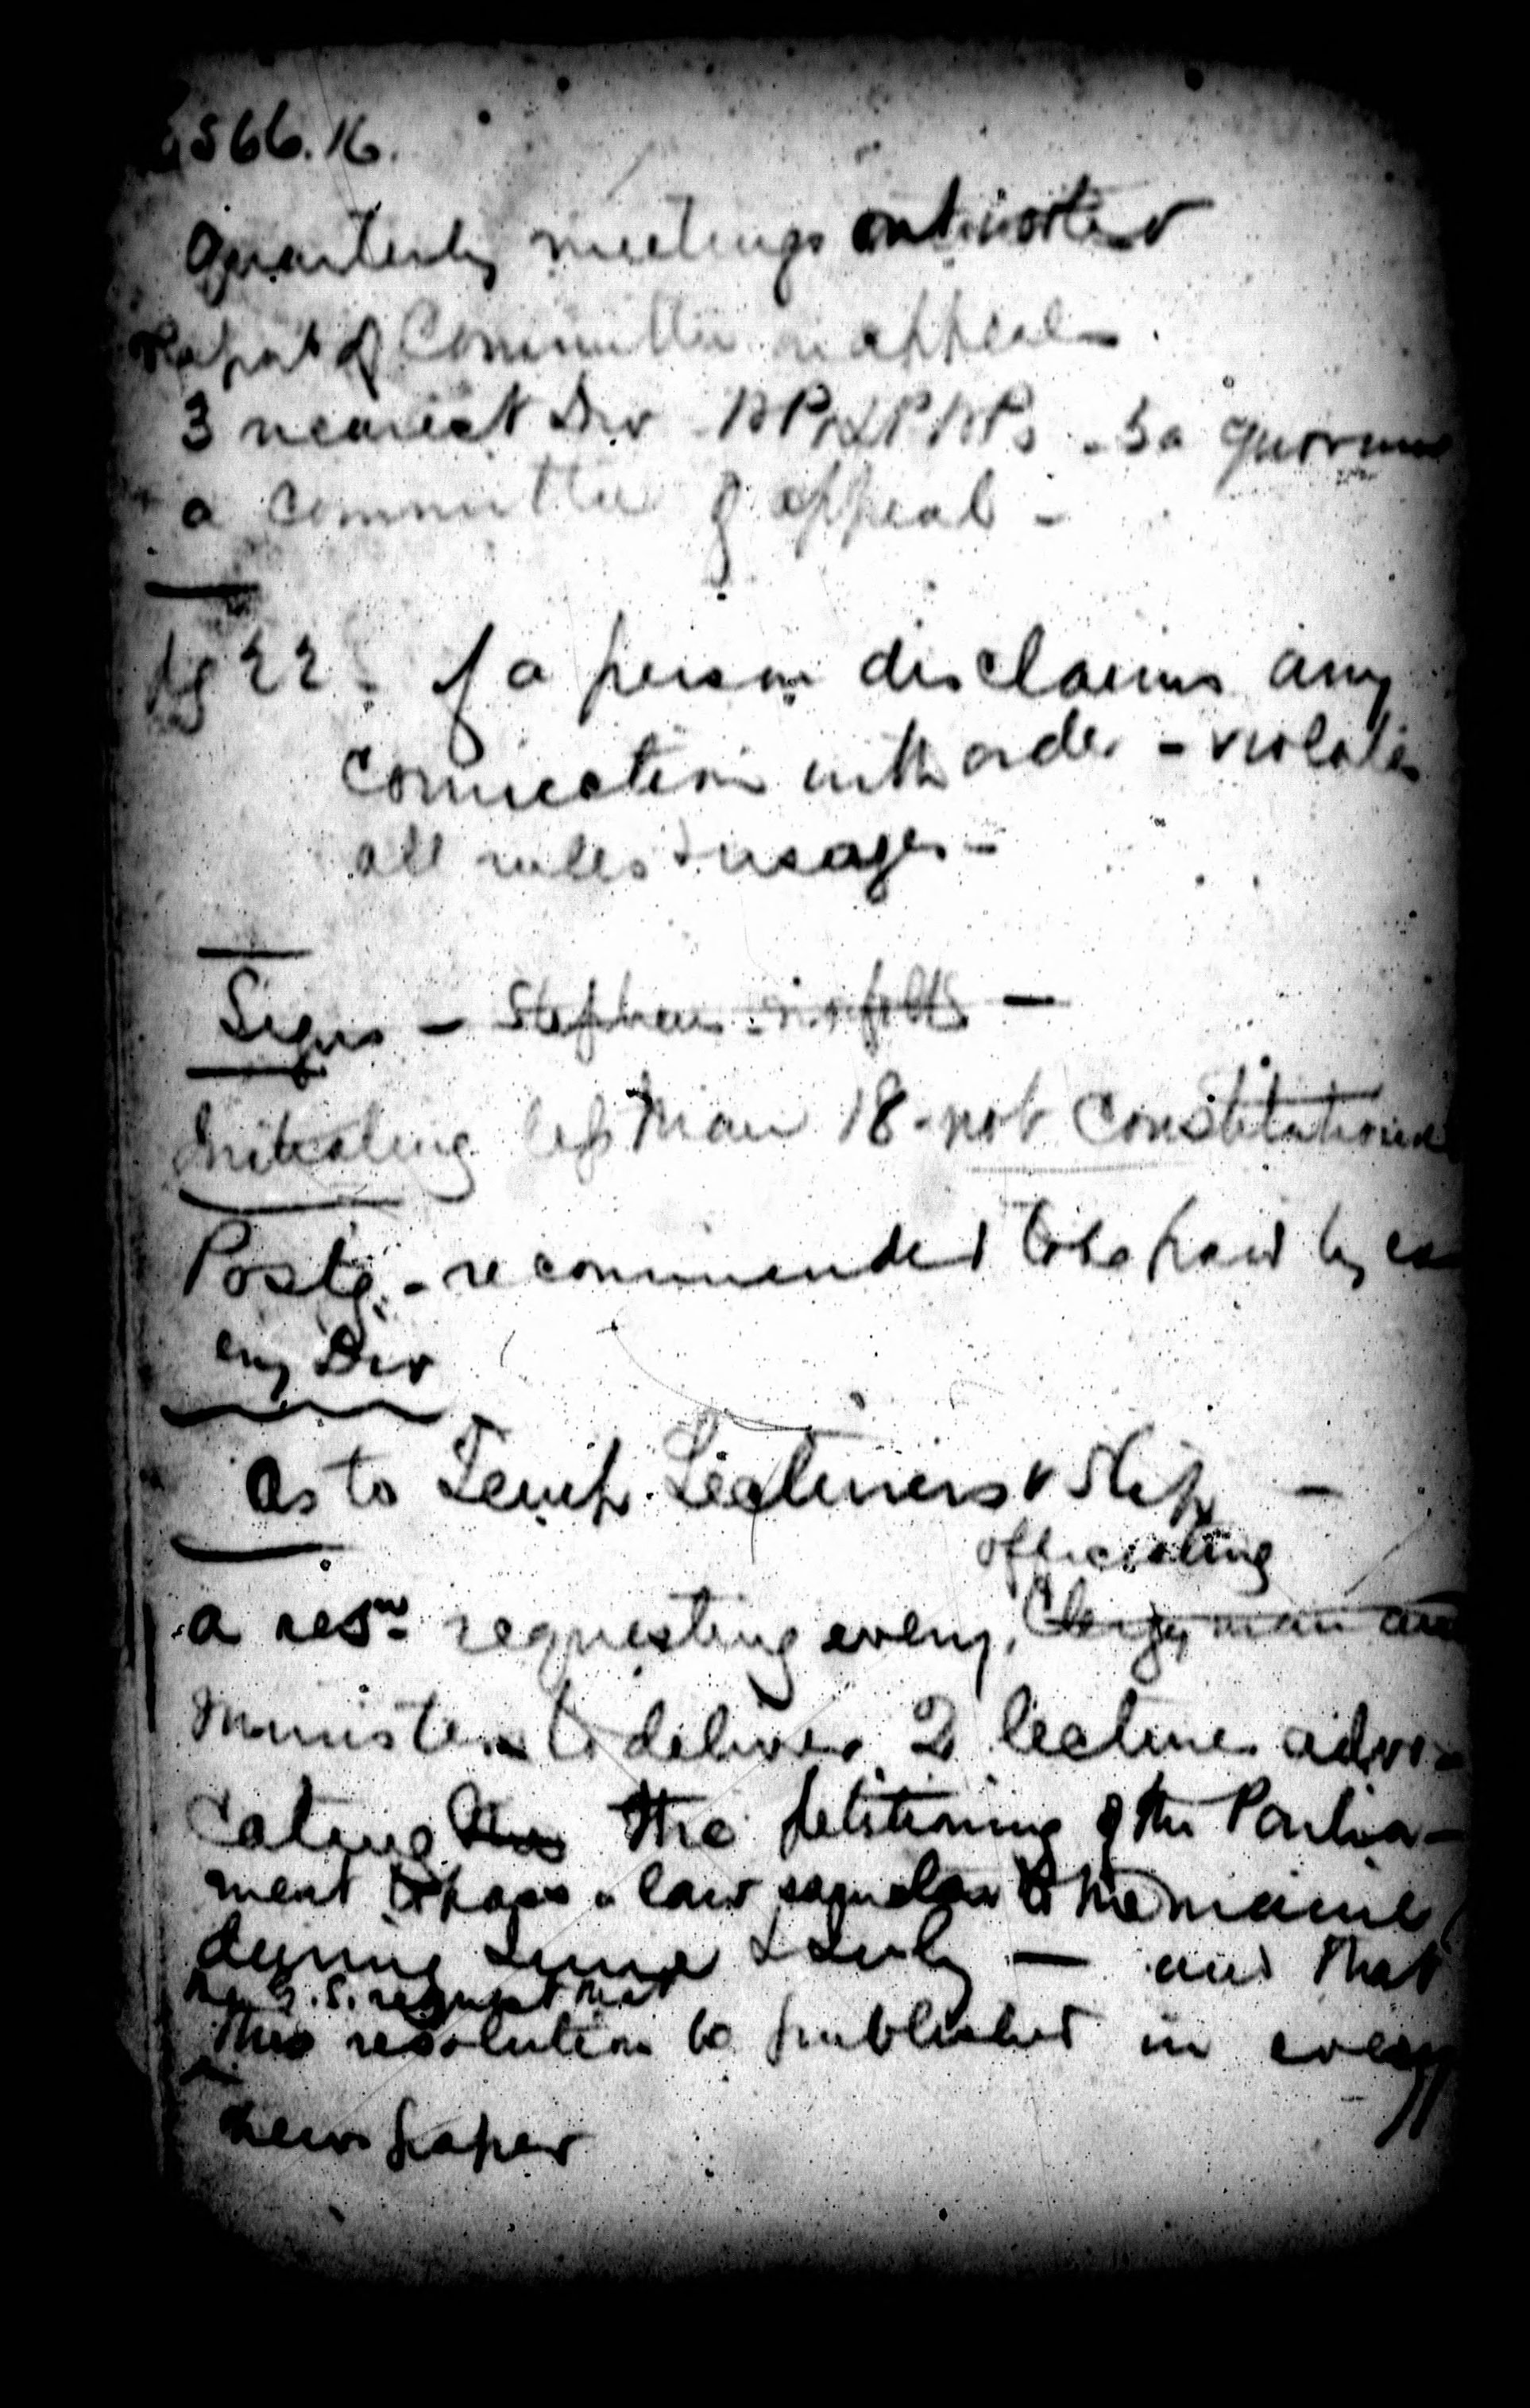 566.16.
Quarterly meetings
Report of Committee on appeal.
3 nearest Div - 5 a quorum
a committee of appeal -
pg 22. If a person disclaims any
connection with order - violates
all rules & usages -
Signs - Stephen
Initiating less than 18 - not Constitutional
Postg. - recommended to be paid by ev
ery Div
As to Temp. Lecturers & Slip -
officiating
a resn. requesting every Clergyman and
Minister to deliver 2 lecture advo-
cating the petitioning of the Parlia-
ment to pass a law similar to the maine
during June & July - and that
the G.S. request that
this resolution be published in every
newspaper